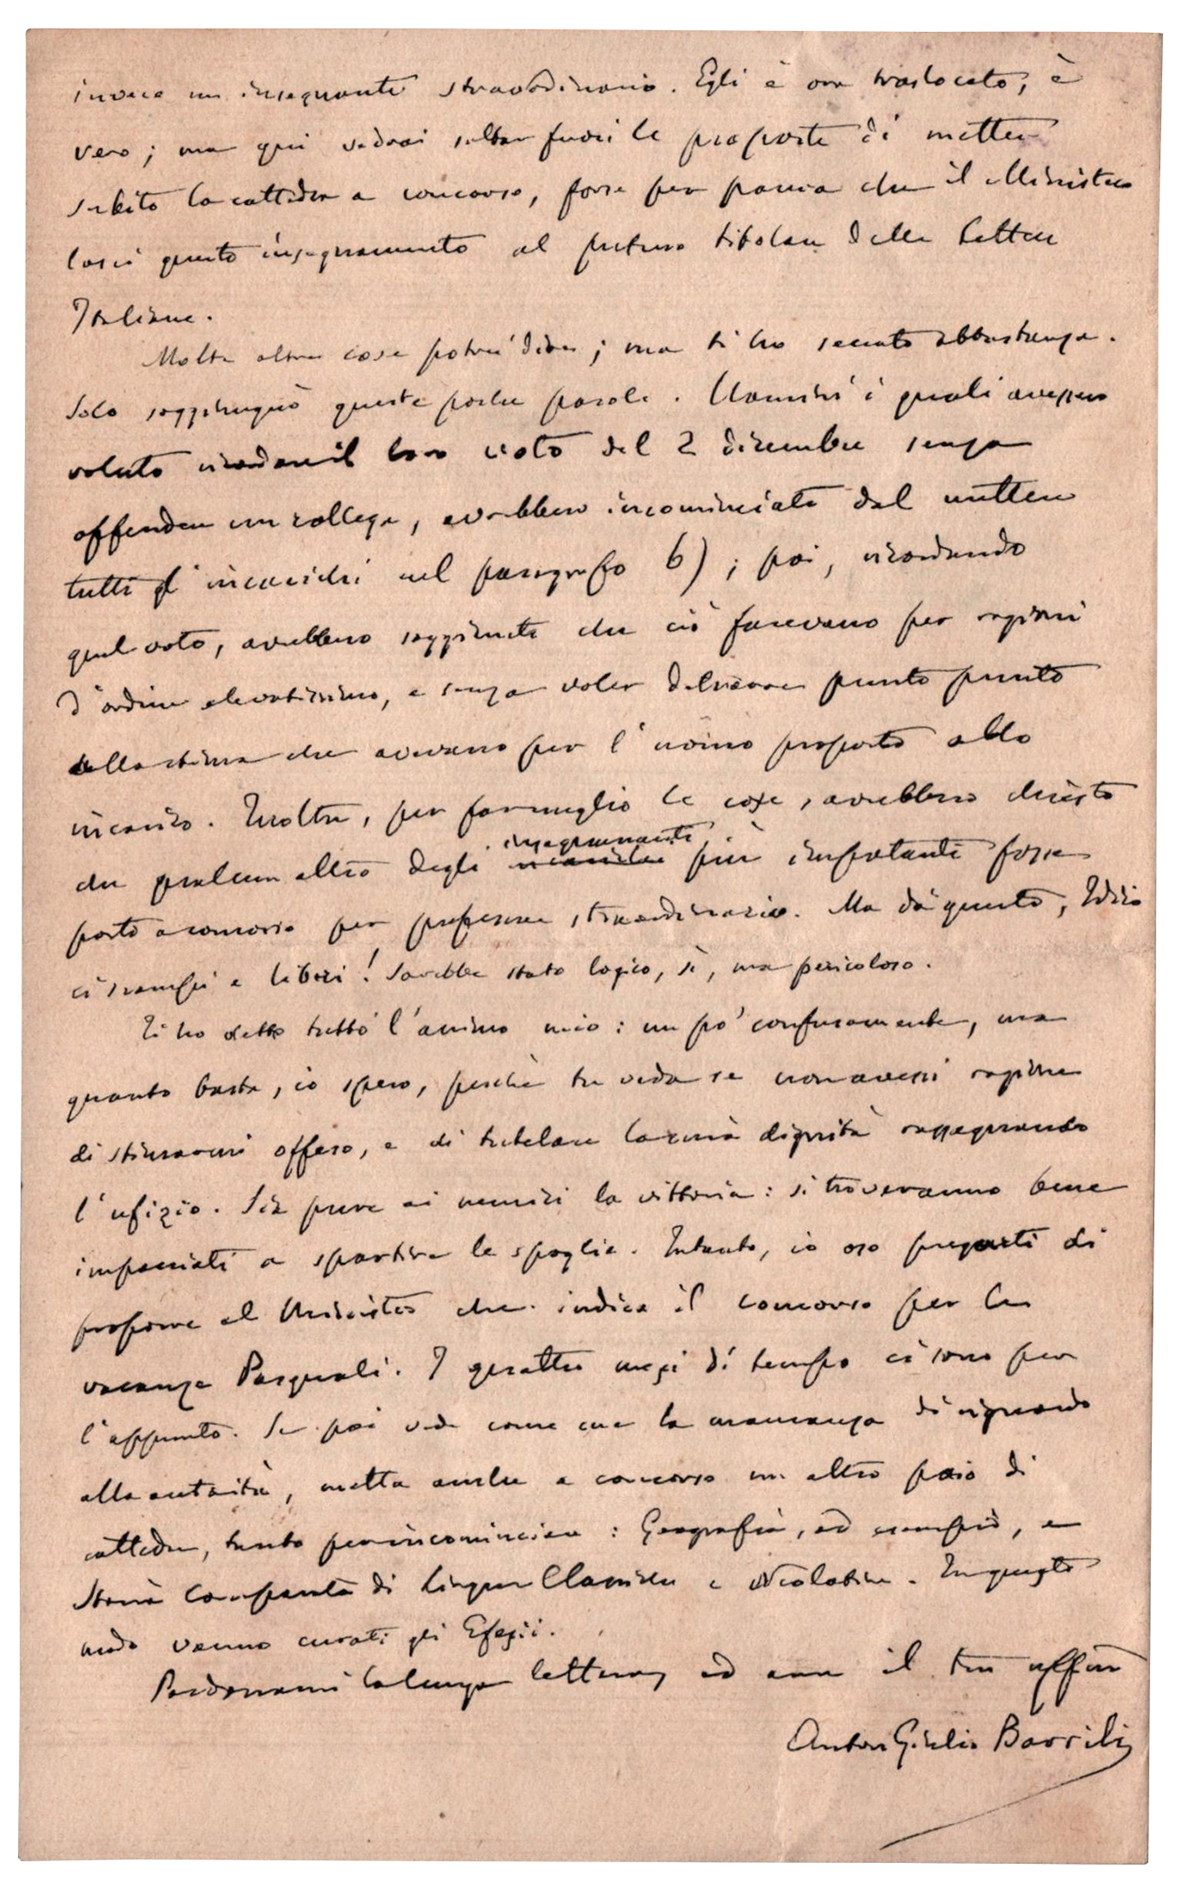 invece un insegnante straordinario. Egli è ora traslocato, è
vero; ma qui vedrai saltar fuori le proposte di metter
subito la cattedra a concorso, forse per paura che il Ministero
lasci questo insegnamento al futuro titolare delle Lettere
Italiane.
Molte altre cose potrei dire; ma ti ho seccato abbastanza.
Solo soggiungerò queste poche parole. Uomini i quali avessero
voluto ricordare il loro voto del 2 dicembre senza
offendere un collega, avrebbero incominciato dal mettere
tutti gl'incarichi nel paragrafo b); poi, ricordando
quel voto, avrebbero soggiunto che ciò facevano per ragioni
d'ordine elevatissimo, e senza voler detrarre punto punto
alla stima che avevano per l'uomo proposto allo
incarico. Inoltre, per far meglio le cose, avrebbero chiesto
che qualcun altro degli insegnamenti più importanti fosse
posto a concorso per professore straordinario. Ma da questo, Iddio
ci scampi e liberi! Sarebbe stato logico, sì, ma pericoloso.
Ti ho detto tutto l'animo mio: un po' confusamente, ma
quanto basta, io spero, perchè tu veda se non avessi ragione
di stimarmi offeso, e di tutelare la mia dignità rassegnando
l'ufizio. Sia pure ai nemici la vittoria: si troveranno bene
impacciati a spartire le spoglie. Intanto, io oso pregarti di
proporre al Ministro che indica il concorso per la
vacanza Pasquali. I quattro mesi di tempo ci sono per
l'appunto. Se poi vede come me la mancanza di riguardo
alla autorità, metta anche a concorso un altro paio di
cattedre, tanto per incominciare: Geografia, ad esempio, e
Storia Comparata di Lingue Classiche e Neolatine. In questo
modo vanno curati gli Efesii.
Perdonami la lunga lettera, ed ama il tuo affmo
Anton Giulio Barrili